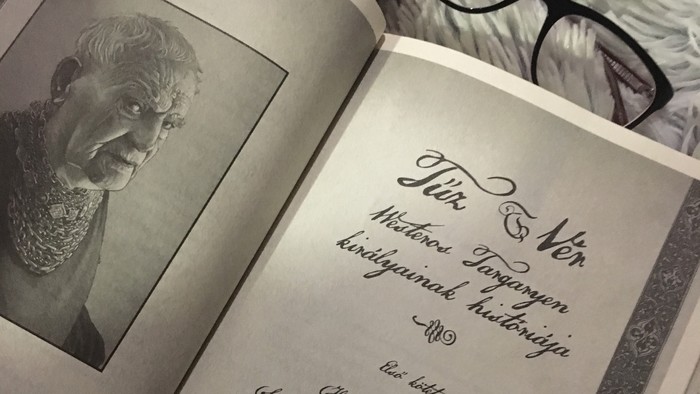 Tűz & Vér
Westeros Targaryen
királyainak históriája
Első kötet